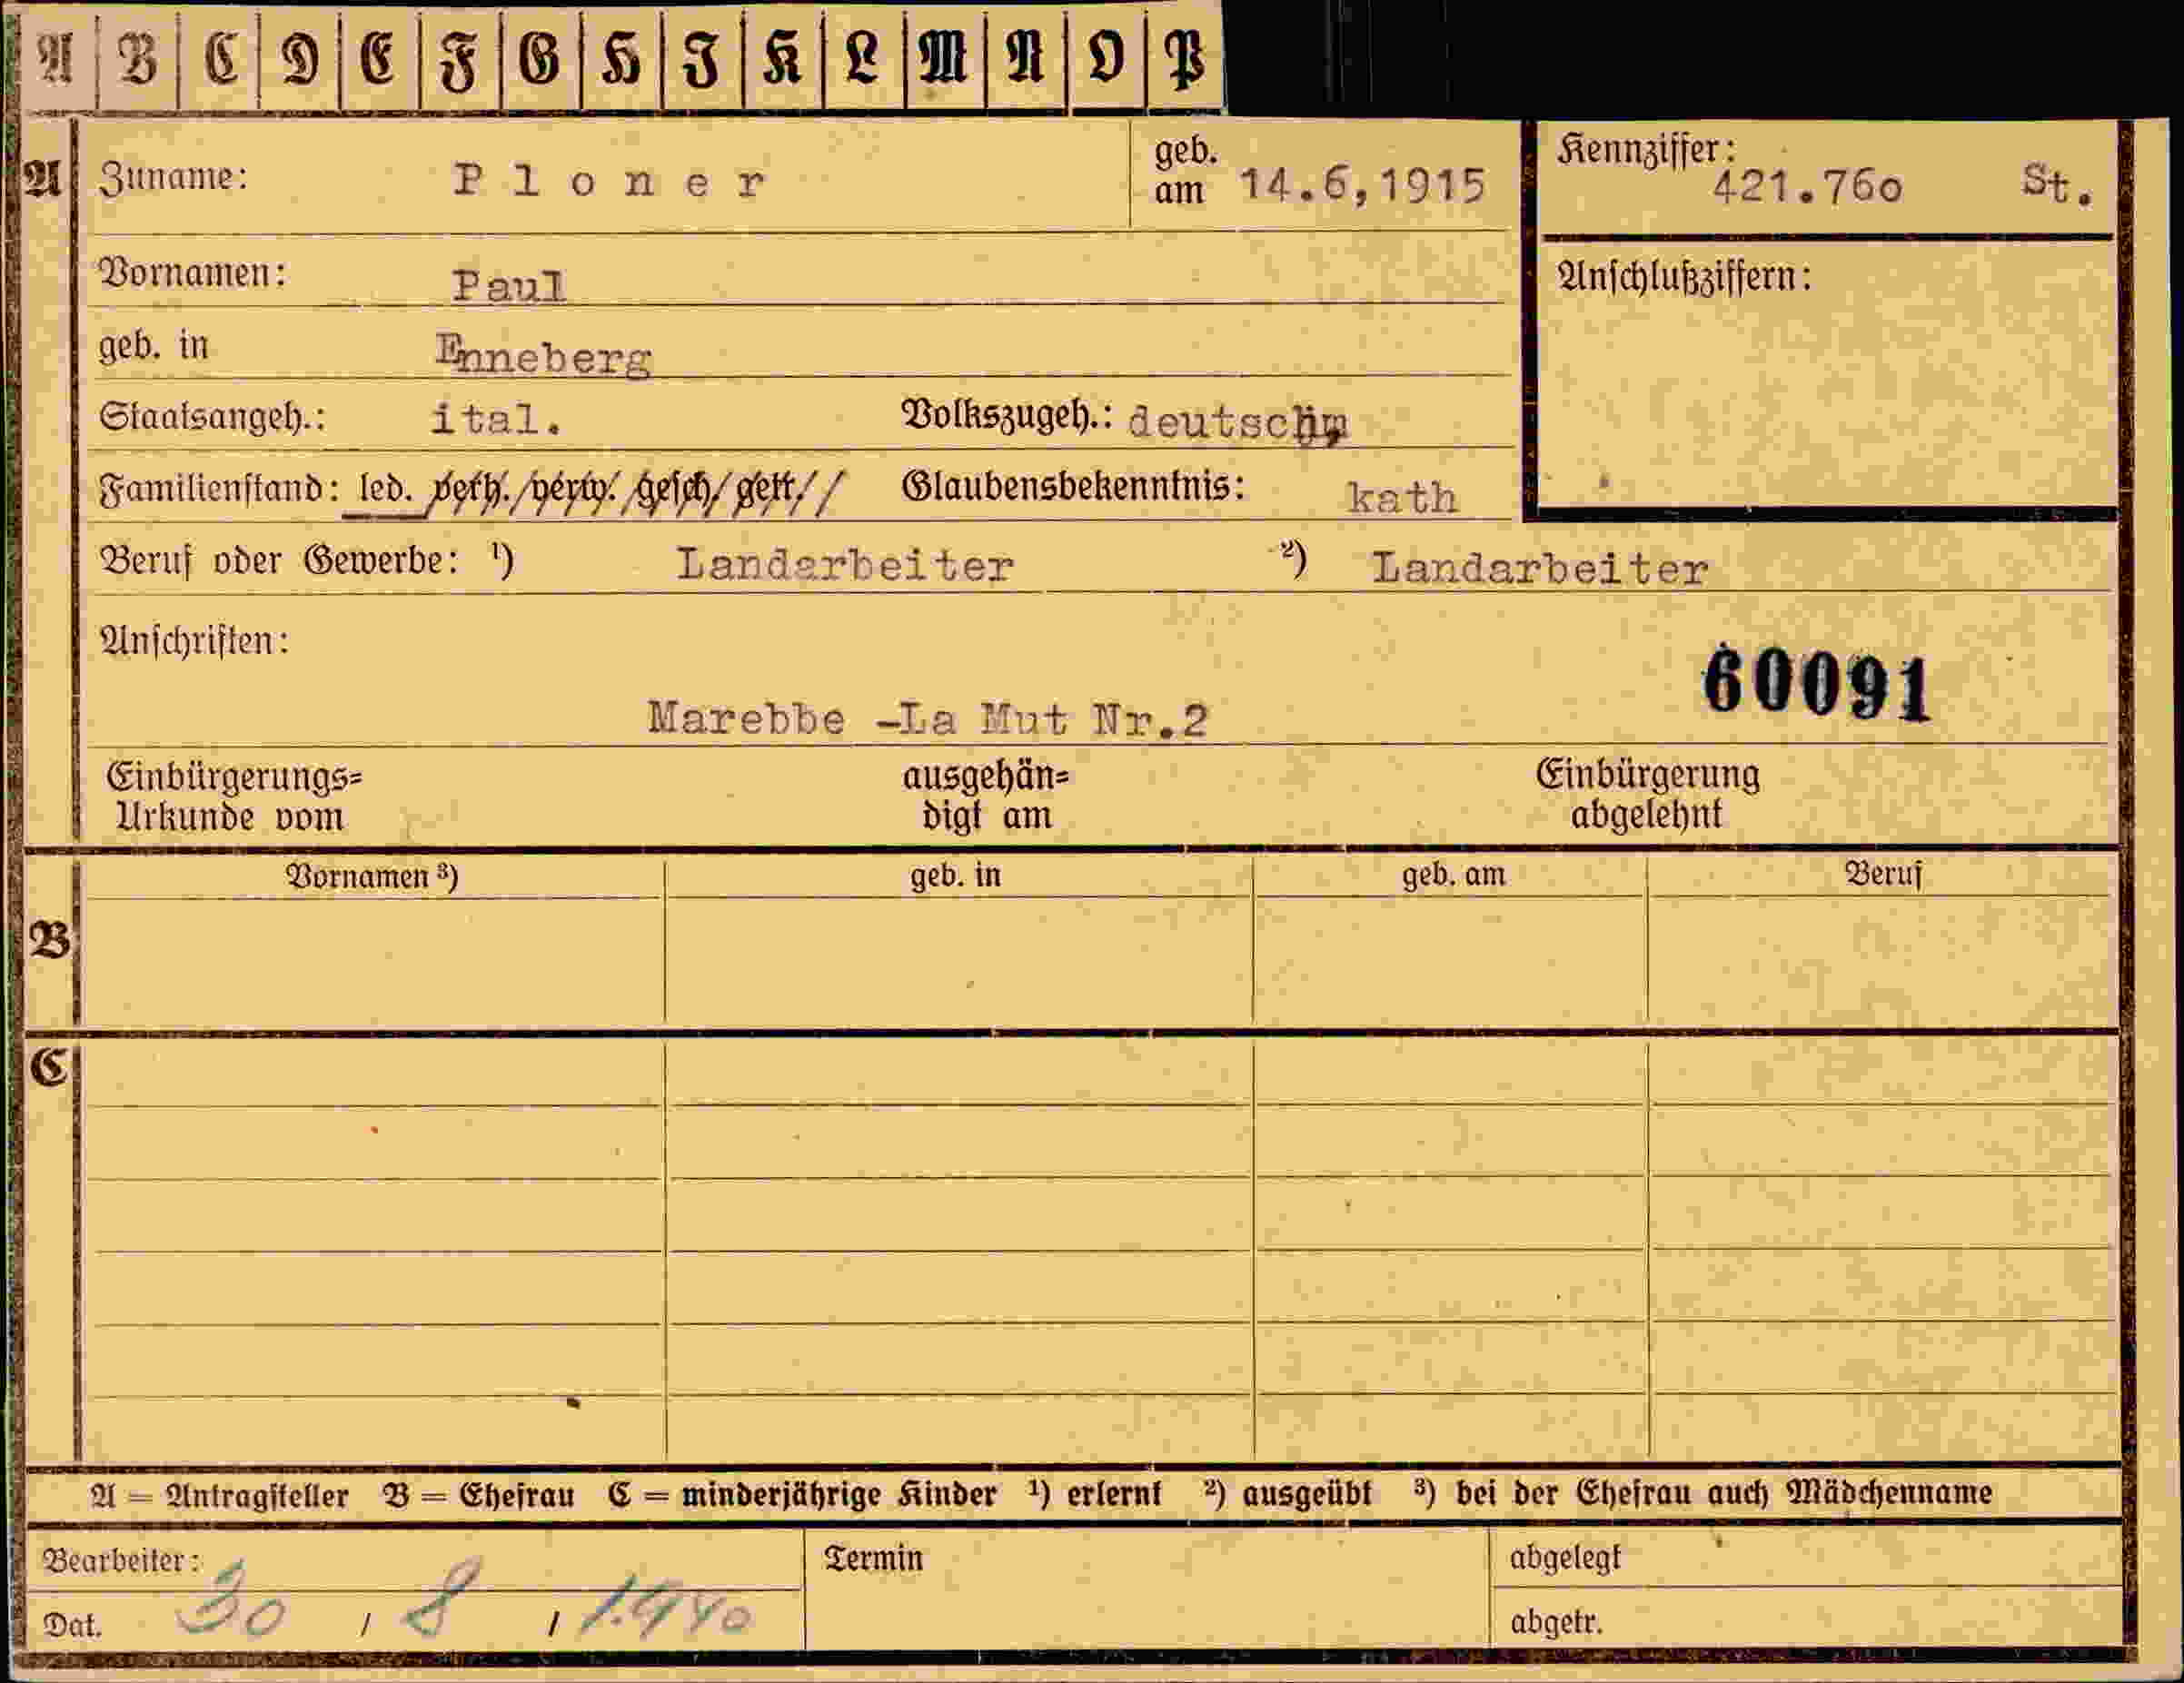 A B C D E F G H I K L M N O P
A Zuname: Ploner geb. am 14.6,1915 Kennziffer: 421.76o St.
Vornamen: Paul Anschlußziffern:
geb. in Enneberg
Staatsangeh.: ital. Volkszugeh.: deutsch
Familienstand: led. verh. verw. gesch. getr. Glaubensbekenntnis: kath
Beruf oder Gewerbe: ¹) Landarbeiter ²) Landarbeiter
Anschriften:
60091
Marebbe -La Mut Nr.2
Einbürgerungs= ausgehän= Einbürgerung
Urkunde vom digt am abgelehnt
Vornamen ³) geb. in geb. am Beruf
B
C
A = Antragsteller B = Ehefrau C = minderjährige Kinder ¹) erlernt ²) ausgeübt ³) bei der Ehefrau auch Mädchenname
Bearbeiter: Termin abgelegt
Dat. 30 / 8 / 1940 abgetr.